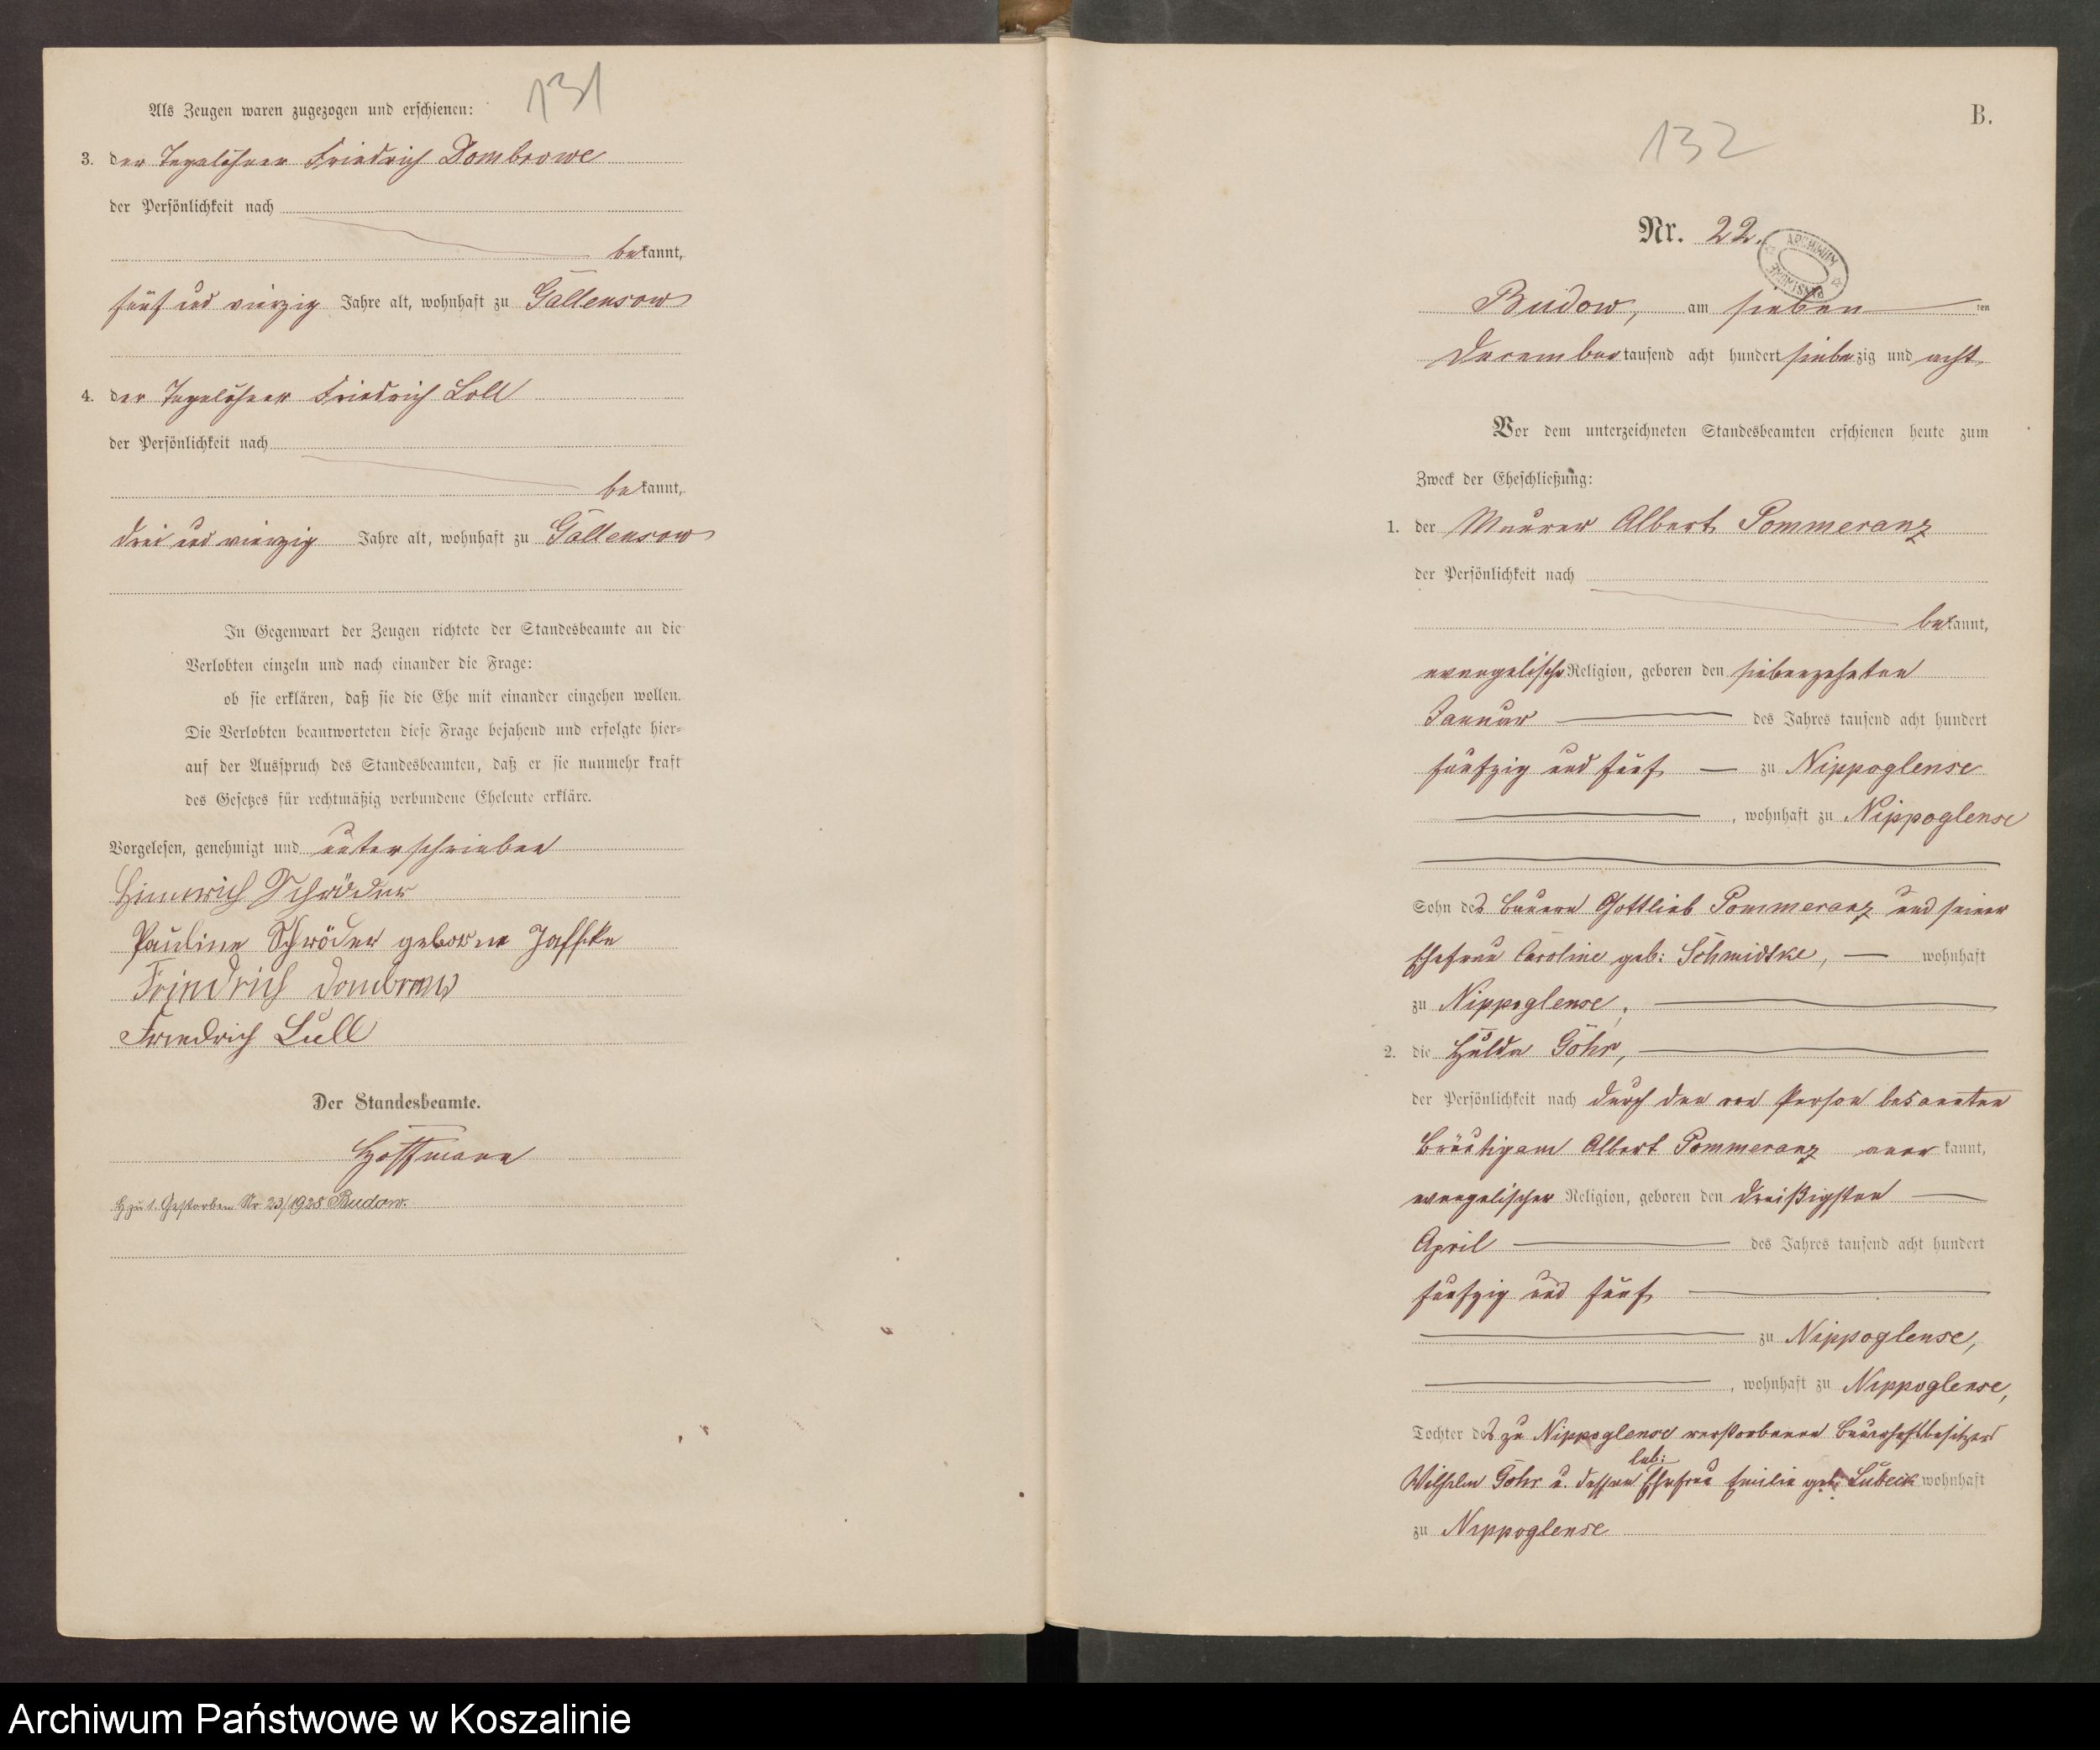 131
Als Zeugen waren zugezogen und erschienen:
3. der Tagelöhner Friedrich Dombrowe
der Persönlichkeit nach
bekannt,
fünf und vierzig Jahre alt, wohnhaft zu Gallensow
4. der Tagelöhner Friedrich Loll
der Persönlichkeit nach
bekannt,
drei und vierzig Jahre alt, wohnhaft zu Gallensow
In Gegenwart der Zeugen richtete der Standesbeamte an die
Verlobten einzeln und nach einander die Frage:
ob sie erklären, daß sie die Ehe mit einander eingehen wollen.
Die Verlobten beantworteten diese Frage bejahend und erfolgte hier-
auf der Ausspruch des Standesbeamten, daß er sie nunmehr kraft
des Gesetzes für rechtmäßig verbundene Eheleute erkläre.
Vorgelesen, genehmigt und unterschrieben
Heinrich Schröder
Pauline Schröder geborne Jaffke
Friedrich Dombrow
Friedrich Lull
Der Standesbeamte.
Hoffmann
H zu 1. Gestorben Nr. 23/1925 Budow.
132
B.
Nr. 22.
ARCHIWUM
Budow, am sieben ten
December tausend acht hundert siebenzig und acht
Vor dem unterzeichneten Standesbeamten erschienen heute zum
Zweck der Eheschließung:
1. der Maurer Albert Pommeranz
der Persönlichkeit nach
bekannt,
evangelischer Religion, geboren den siebenzehnten
Januar des Jahres tausend acht hundert
fünfzig und fünf zu Nippoglense
, wohnhaft zu Nippoglense
Sohn des Bauern Gottlieb Pommeranz und seiner
Ehefrau Caroline geb: Schmidtke, wohnhaft
zu Nippoglense;
2. die Hulda Göhr,
der Persönlichkeit nach durch den von Person bekannten
Bräutigam Albert Pommeranz anerkannt,
evangelischer Religion, geboren den dreißigsten
April des Jahres tausend acht hundert
fünfzig und fünf
zu Nippoglense,
, wohnhaft zu Nippoglense,
Tochter des zu Nippoglense verstorbenen Bauerhofbesitzers
Wilhelm Göhr u. dessen leb: Ehefrau Emilie geb: Lübeck wohnhaft
zu Nippoglense
Archiwum Państwowe w Koszalinie